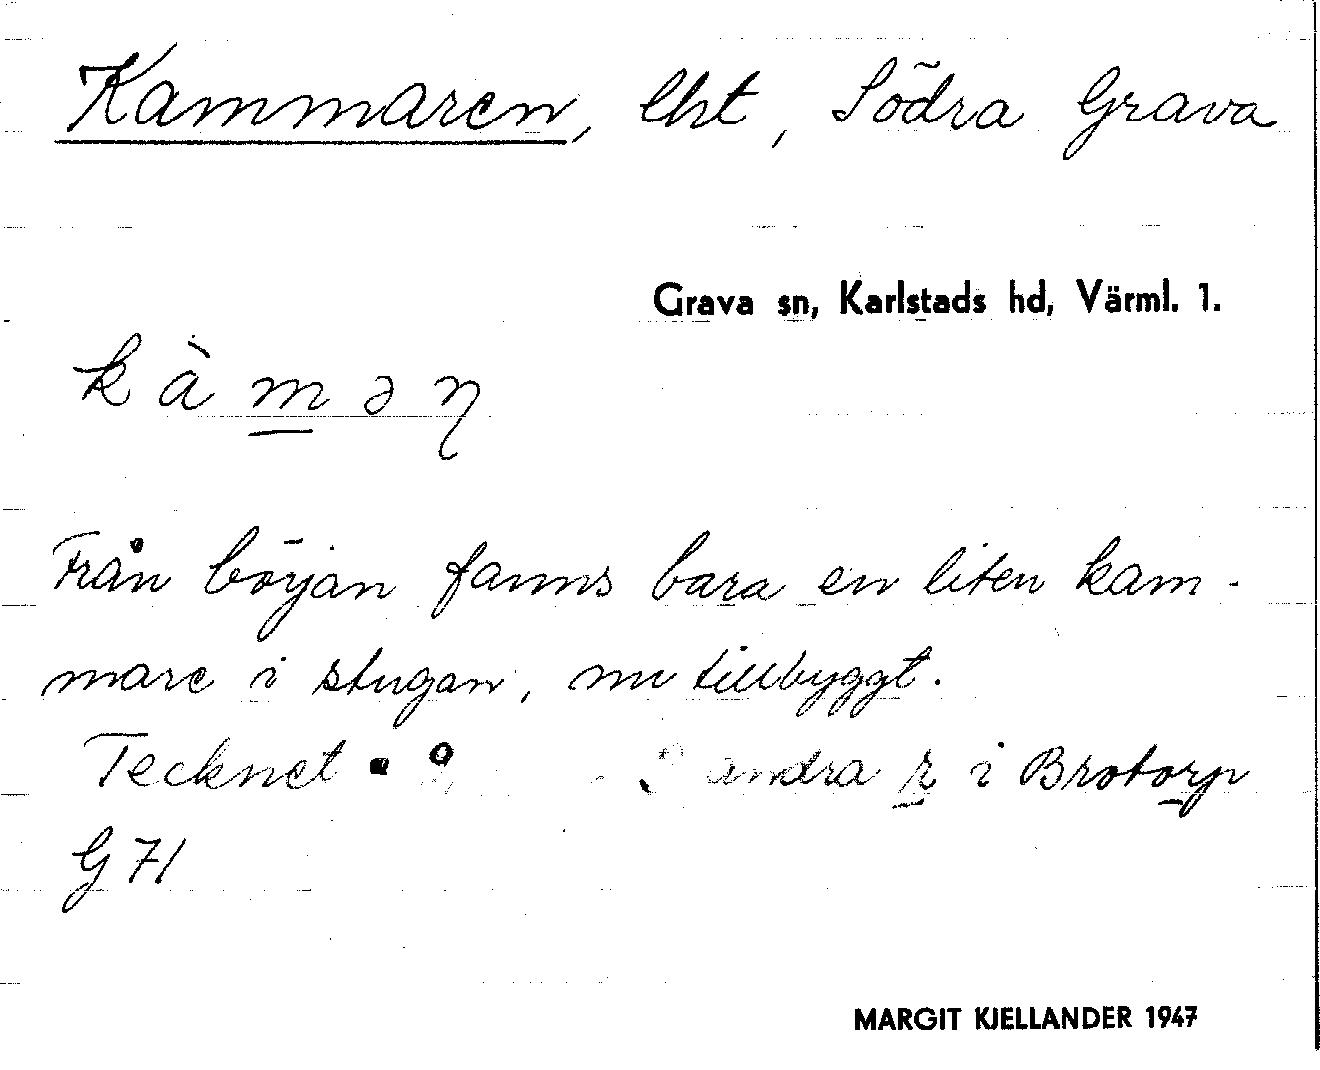 Kammaren, lht, Södra Grava
Grava sn, Karlstads hd, Värml. l.
kàmən
Från början fanns bara en liten kam-
mare i stugan, nu tillbyggt.
Tecknet andra r i Brotorp
G 71
MARGIT KJELLANDER 1947